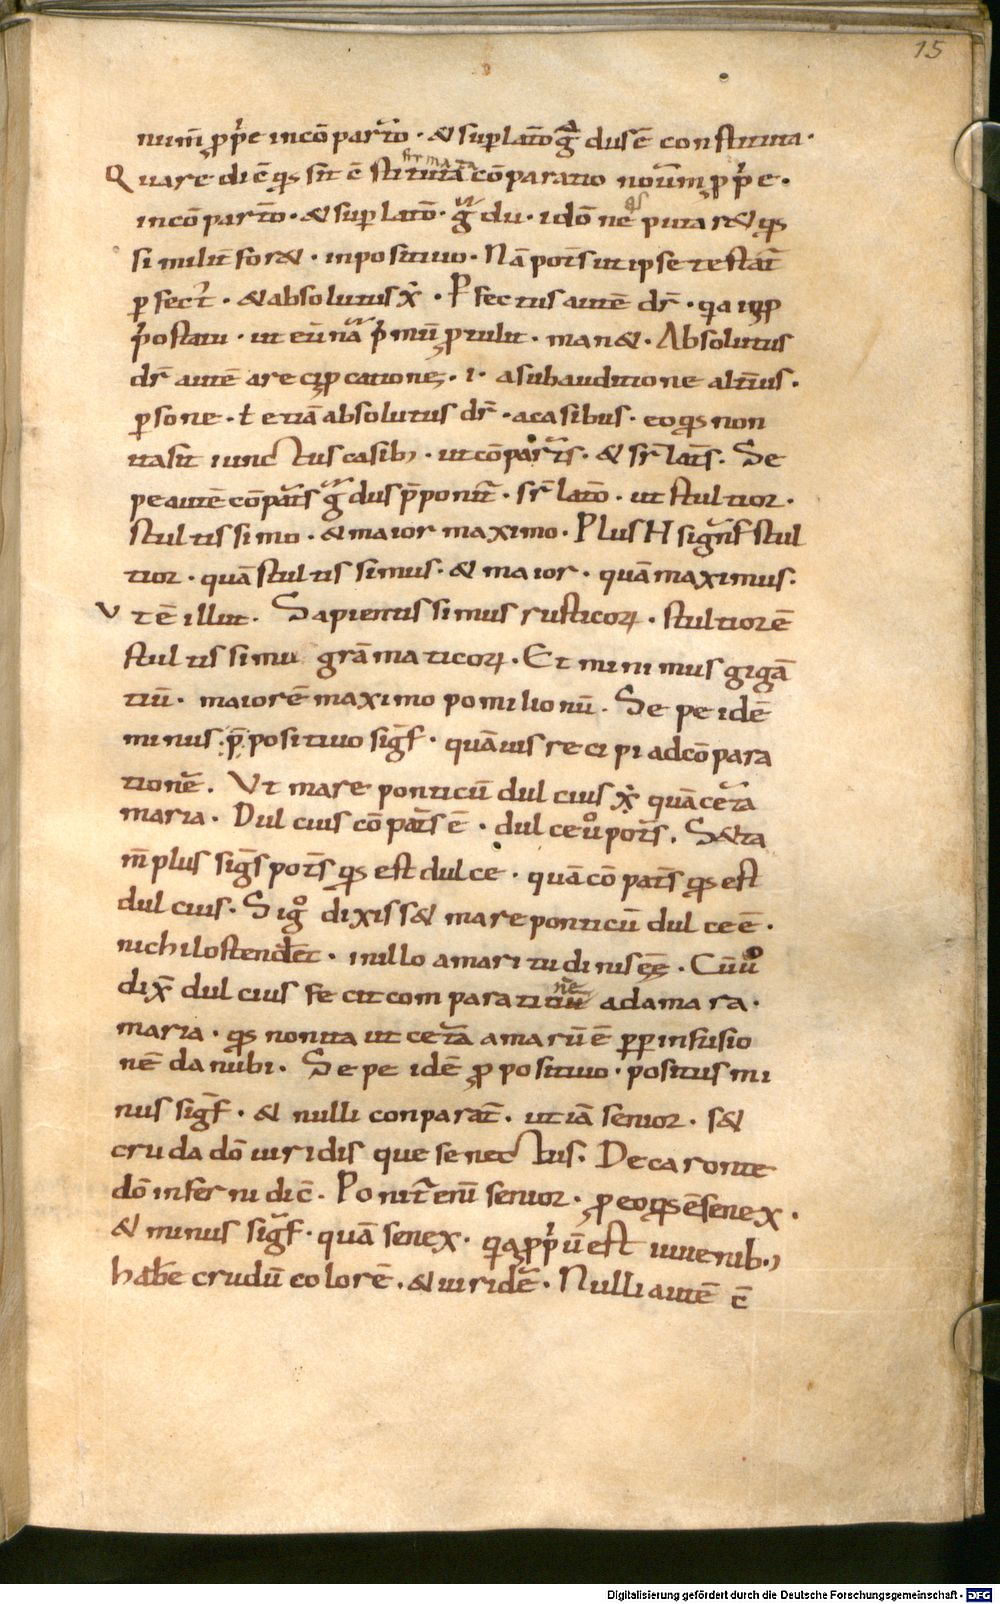 15
num̄ ꝓp̍e incō part̄o · & suꝑlato g̃ dus ē constituta ·
Quare dic̄ qđ sit ē stituta firmata cōparatio nouū ꝓp̍e ·
incō part̄o · & suꝑ lato · g̃ du · idō ne qđ putar& qđ
similit̄ for& · inpositiuo · Nā potis̄ ut ipse testat̄
ꝑ fect̄ · & absolutus x̄ · P̄fectus autē dr̄ · qa iā ꝑ
p̍ostatu · ut eū nā p̍mū ꝓtulit · man& · Absolutus
dr̄ autē a recipcatione · i · a subauditione alt̄ius ·
ꝑsone · ł etiā absolutus dr̄ · a casibus · eo qđ non
ita sit iunctus casib; · ut cōparat̄s · & sr̄ lat̄s · Se
pe autē cōpat̄s g̃ dus p̄ponit̄ · sr̄ lato · ut stultior ·
stultissimo · & maior maximo · Plus H signf̄ stul
tior · quā stultissimus · & maior · quā maximus ·
Vt ē illut · Sapientissimus rusticoꝝ · stultior ē
stultissimu grāmaticoꝝ · Et minimus gigā
tiū · maior ē maximo pomilionū · Sepe idē
minus p̄positiuo sigf̄ · quāuis recipi ad cōpara
tionē · Vt mare ponticū dulcius x̄ quā cet̄a
maria · Dulcius cōpat̄s ē · dulce ů pot̄s · S& ta
m̄ plus sigs̄ pot̄s qđ est dulce · quā cōpat̄s qđ est
dulcius · Si g̊ dixiss& mare ponticū dulce ē ·
nichil ostender& · in illo amaritudinis eē · Cū ů
dix̄ dulcius fecit comparatiūne ad amara ·
maria · qđ non ita ut cet̄a amarū ē ꝓpꝑ infusio
nē danubi · Sepe idē ꝓ positiuo · positus mi
nus sigf̄ · & nulli conparat̄ · ut iā senior · s&
cruda dō uiridisque senectus · De caronte
dō inferni dic̄ · Ponit̄ enī senior · ꝓ eo qđ ē senex ·
& minus sigf̄ · quā senex · qa ꝓp̍ū est iuuenib;
habe crudū colorē · & uiridē · Nulli autē c̄
Digitalisierung gefördert durch die Deutsche Forschungsgemeinschaft - DFG